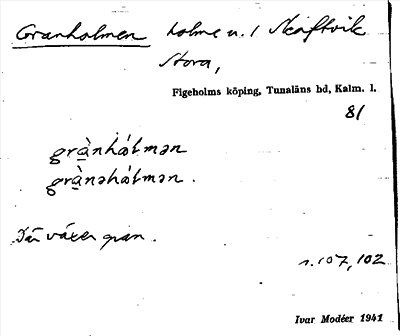 Granholmen holme u. / Skaftvik
Stora,
Figeholms köping, Tunaläns hd, Kalm. l.
81
grànhálmən
grànəhálmən.
Där växer gran.
s. 107, 102
Ivar Modéer 1941